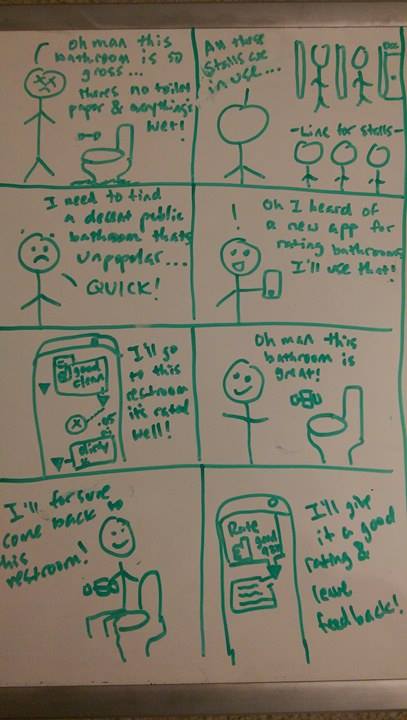 Oh man this
bathroom is so
gross...
theres no toilet
paper & everything's
wet!
All these
stalls are
in use...
-Line for stalls-
I need to find
a decent public
bathroom thats
unpopular...
QUICK!
!
Oh I heard of
a new app for
rating bathrooms
I'll use that!
good
clean
.05
dirty
I'll go
to this
restroom
its rated
well!
Oh man this
bathroom is
great!
I'll for sure
come back to
this
restroom!
Rate
good
I'll give
it a good
rating &
leave
feedback!